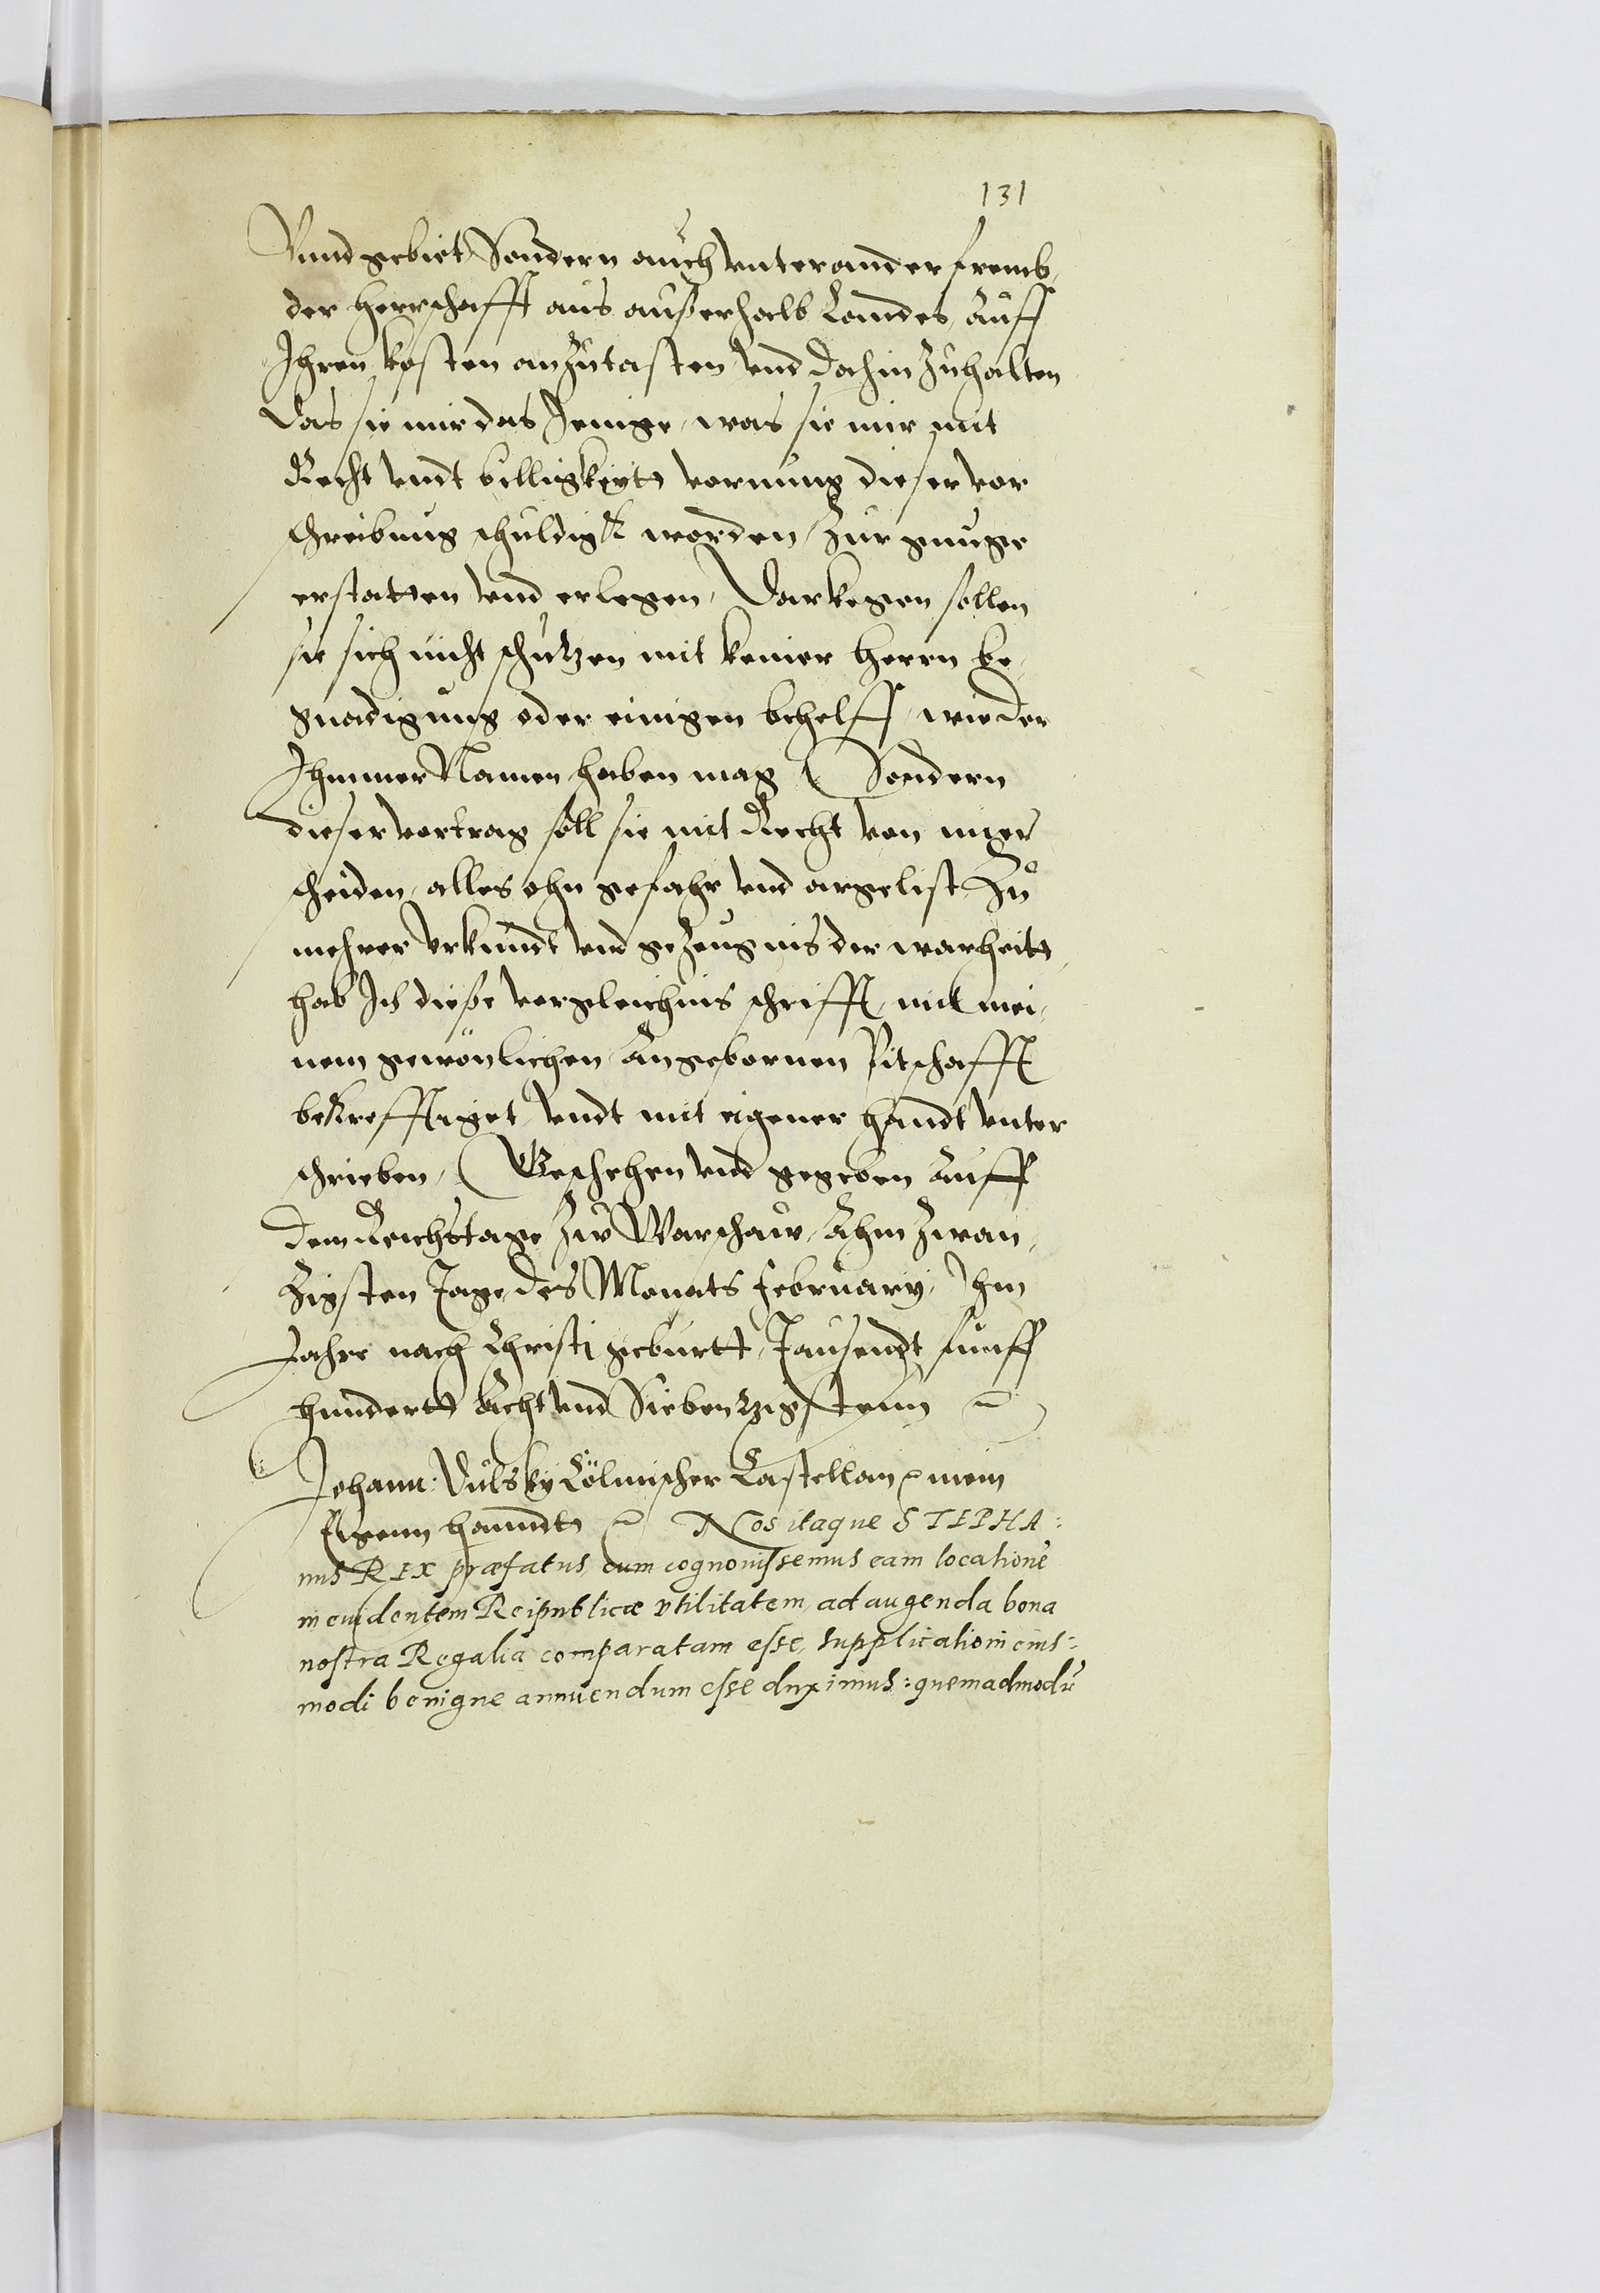 131
Vnnd gebiet Sondern auch vnter ander fremb,
der herrschafft aus ausserhalb Landes, Auff
Ihren kosten anzutasten vnd dohin zuhalten
Das sie mir das Jenige, was sie mir mit
Recht vndt billigkeytt vormug dieser vor
schreibung schuldigk worden, Zur gnuge
erstatten vnd erlegen, Dorkegen sollen
sie sich nicht schutzen mit keiner herrn be,
gnadigung oder einigen behelff, wie der
Ihmmer Namen haben mag (Sondern
dieser vortrag soll sie mit Recht von mir
scheiden, alles ohn gefahr vnd argelist Zu
mehrer vrkundt vnd gezeugnis der warheitt,
hab Ich diesse vorgleichnis schrifft, mit mei,
nem gewönlichen Angebornen Pitschafft
bekrefftiget vndt mit eigener handt vnter
schrieben, (Geschehen vnd gegeben Auff
dem Reichstage Zw Warschaw, Ahm Zwan,
Zigsten Tage des Monats February, Ihm
Jahre nach Christi geburtt, Tausendt funff
hundertt Acht vnd Siebentzigstenn
Johann: Dulsky Cölmischer Castellan mein
Eigenn hanndtt Nos itaque STEPHA:
nus REX præfatus cum cognouissemus eam locationẽ
in euidentem Reipublicæ vtilitatem, ad augenda bona
nostra Regalia comparatam esse, supplicationi eius:
modi benigne annuendum esse duximus: quemadmodũ